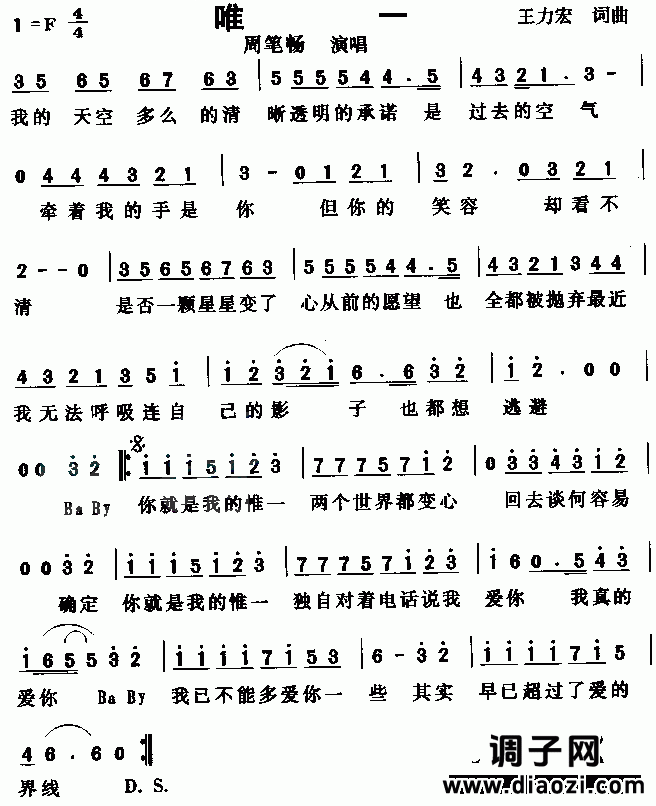 1=F 4/4 唯 一 王力宏 词曲
周笔畅 演唱
35 65 67 63 | 5555544.5 | 4321.3- |
我的 天空 多么 的清 晰透明的承诺 是 过去的空 气
0444321 | 3-0121 | 32.0321 |
牵着我的手是 你 但你的 笑容 却看不
2--0 | 3565676763 | 5555544.5 | 43213 44 |
清 是否一颗星星变了 心从前的愿望 也 全都被抛弃最近
4321351 | 123216.632 | 12.00 |
我无法呼吸连自 己的影 子 也都想 逃避
0032 ‖: 1115123 | 7775712 | 0334312 |
Ba By 你就是我的惟一 两个世界都变心 回去谈何容易
0032 | 1115123 | 77757123 | 160.543 |
确定 你就是我的惟一 独自对着电话说我 爱你 我真的
165532 | 11117153 | 6-32 | 1111715 |
爱你 Ba By 我已不能多爱你一 些 其实 早已超过了爱的
46.60 :‖
界线 D. S.
调子网
www.diaozi.com